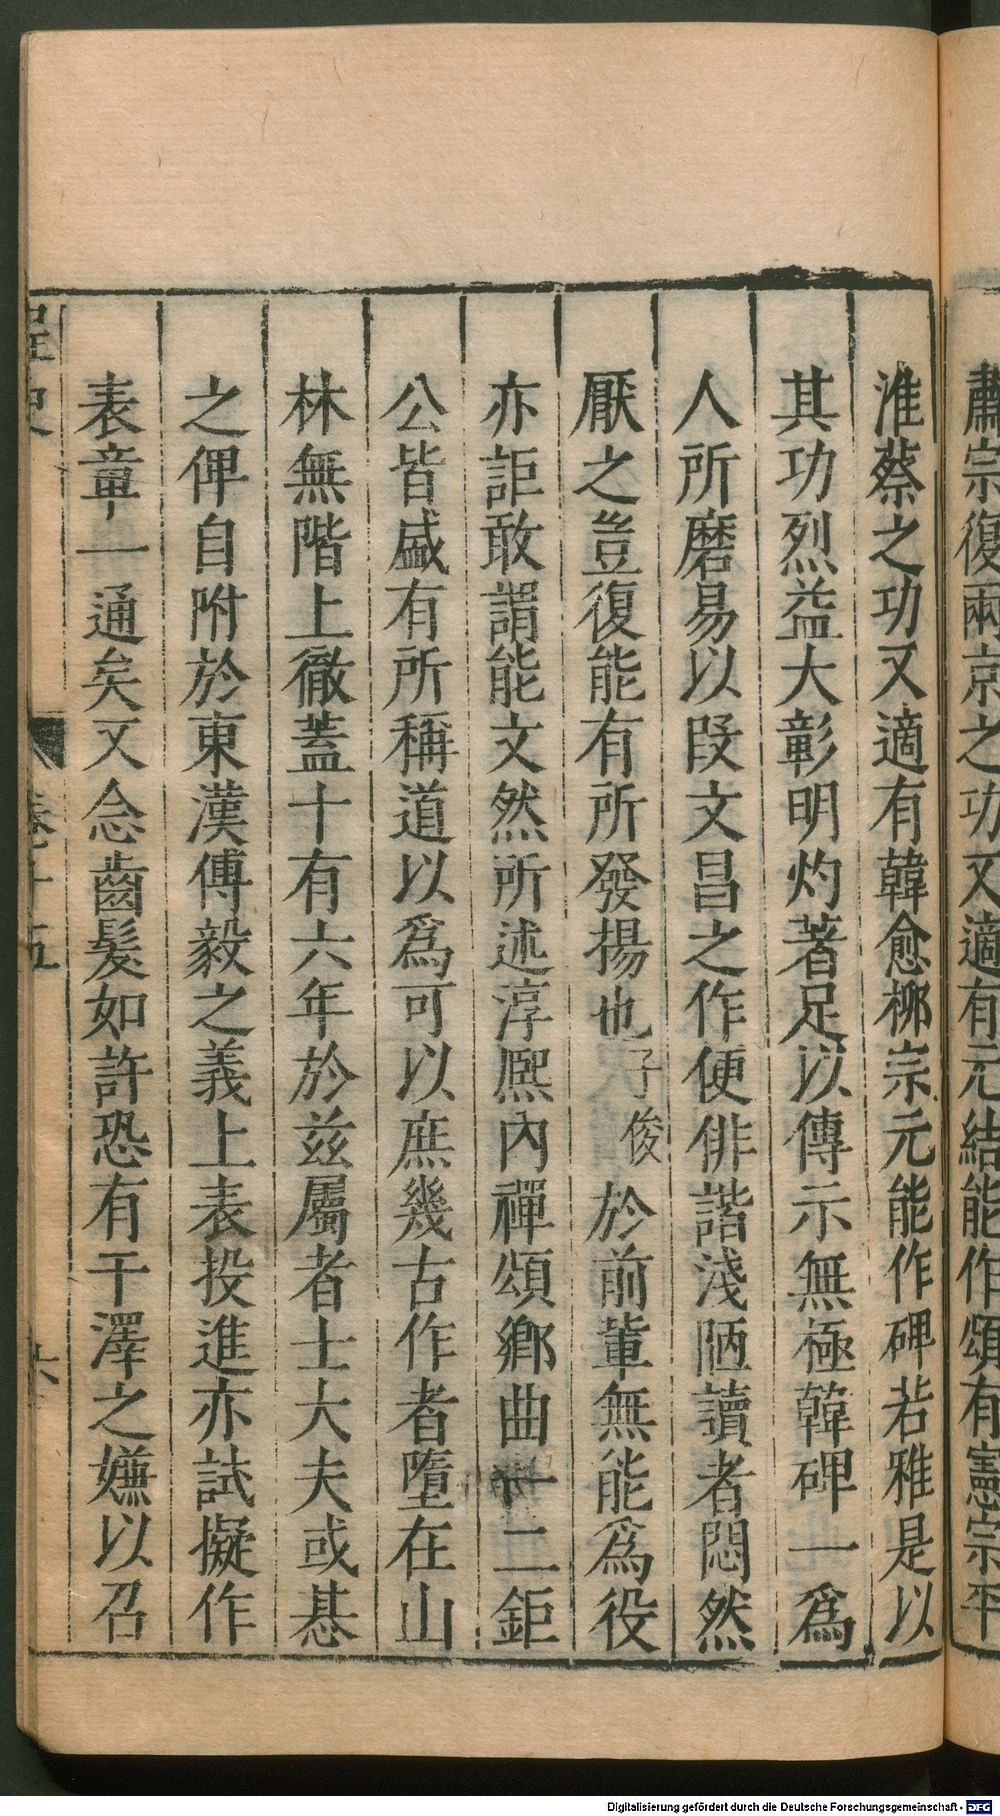 肅宗復兩京之功又適有元結能作頌有憲宗平
淮蔡之功又適有韓愈栁宗元能作碑若雅是以
其功烈益大彰明灼著足以傳示無極韓碑一爲
人所磨易以段文昌之作便俳諧淺陋讀者悶然
厭之豈復能有所發揚也子俊於前輩無能爲役
亦詎敢謂能文然所述淳熙內禪頌鄉曲一二鉅
公皆盛有所稱道以爲可以庶幾古作者墮在山
林無階上徹蓋十有六年於茲屬者士大夫或惎
之俾自附於東漢傅毅之義上表投進亦試擬作
表章一通矣又念齒髮如許恐有干澤之嫌以召
桯史
卷十五
六
Digitalisierung gefördert durch die Deutsche Forschungsgemeinschaft - DFG